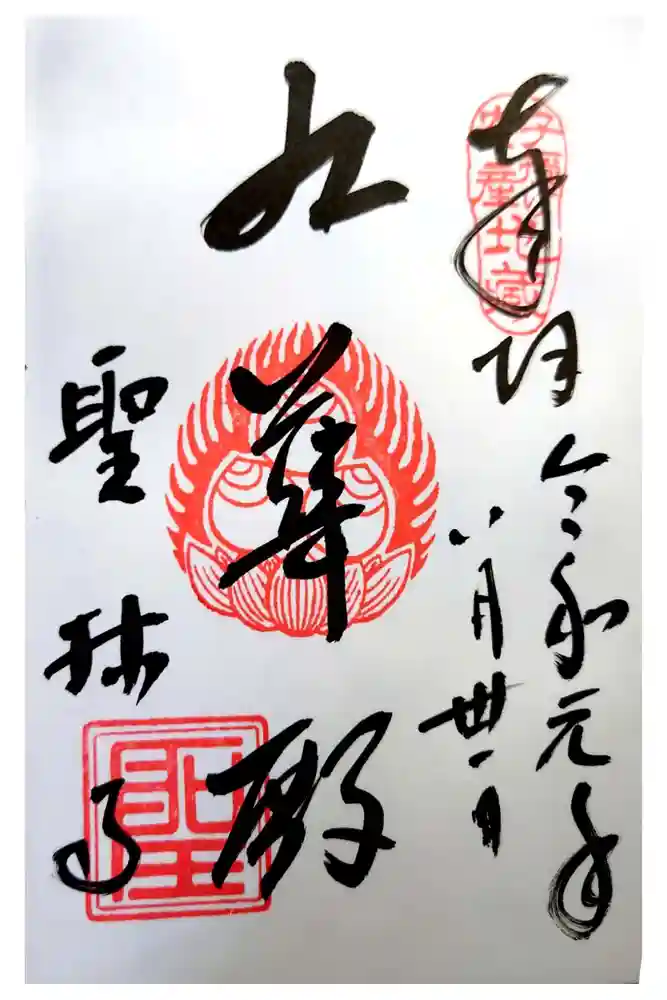 奉拝
令和元年
八月卅一日
九華殿
聖林寺
聖